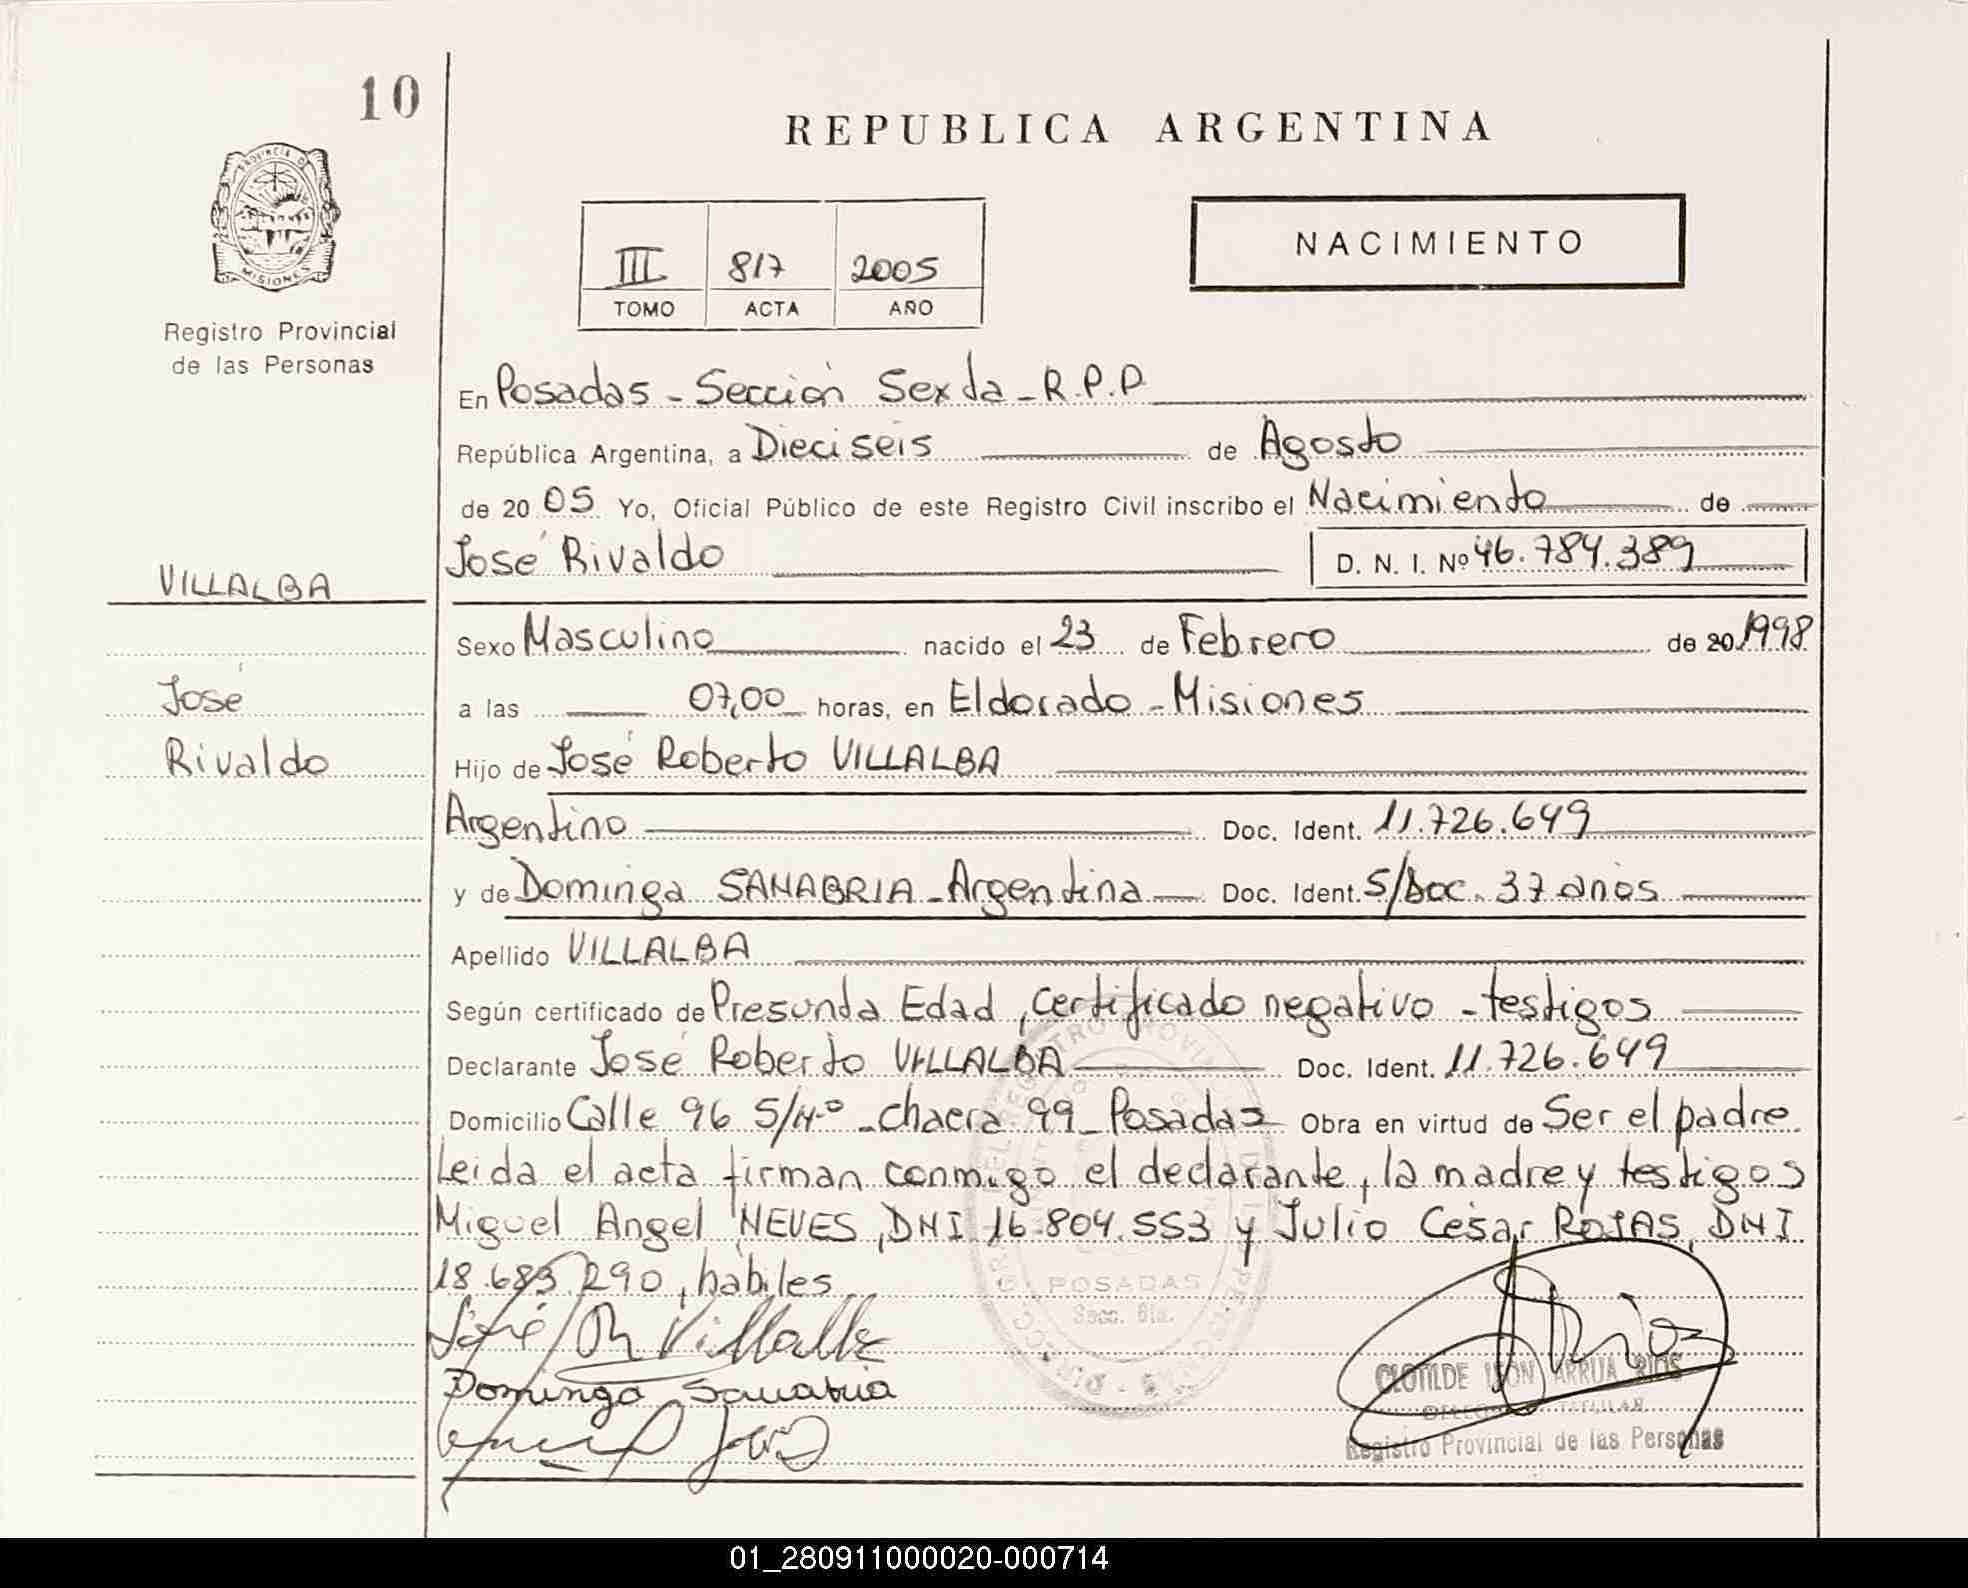 10
REPUBLICA ARGENTINA
PROVINCIA DE
MISIONES
Registro Provincial
de las Personas
III 817 2005
TOMO ACTA AÑO
NACIMIENTO
En Posadas - Sección Sexta - R.P.P
República Argentina, a Dieciseis de Agosto
de 20 05 Yo, Oficial Público de este Registro Civil inscribo el Nacimiento de
José Rivaldo D. N. I. Nº 46.784.389
VILLALBA
Sexo Masculino nacido el 23 de Febrero de 20 1998
José
a las 07,00 horas, en Eldorado - Misiones
Rivaldo
Hijo de José Roberto VILLALBA
Argentino Doc. Ident. 11.726.649
y de Dominga SANABRIA - Argentina Doc. Ident. S/Doc. 37 anos
Apellido VILLALBA
Según certificado de Presunta Edad, certificado negativo - testigos
Declarante José Roberto VILLALBA Doc. Ident. 11.726.649
Domicilio Calle 96 S/Nº - chacra 99 - Posadas Obra en virtud de Ser el padre
Leida el acta firman conmigo el declarante, la madre y testigos
Miguel Angel NEVES, DNI 16.804.553 y Julio César ROJAS, DNI
18.683.290, habiles
POSADAS
Secc. 6ta.
José R Villalba
Dominga Sanabria
CLOTILDE LEÓN ARRUA RIOS
TITULAR
Registro Provincial de las Personas
01_280911000020-000714